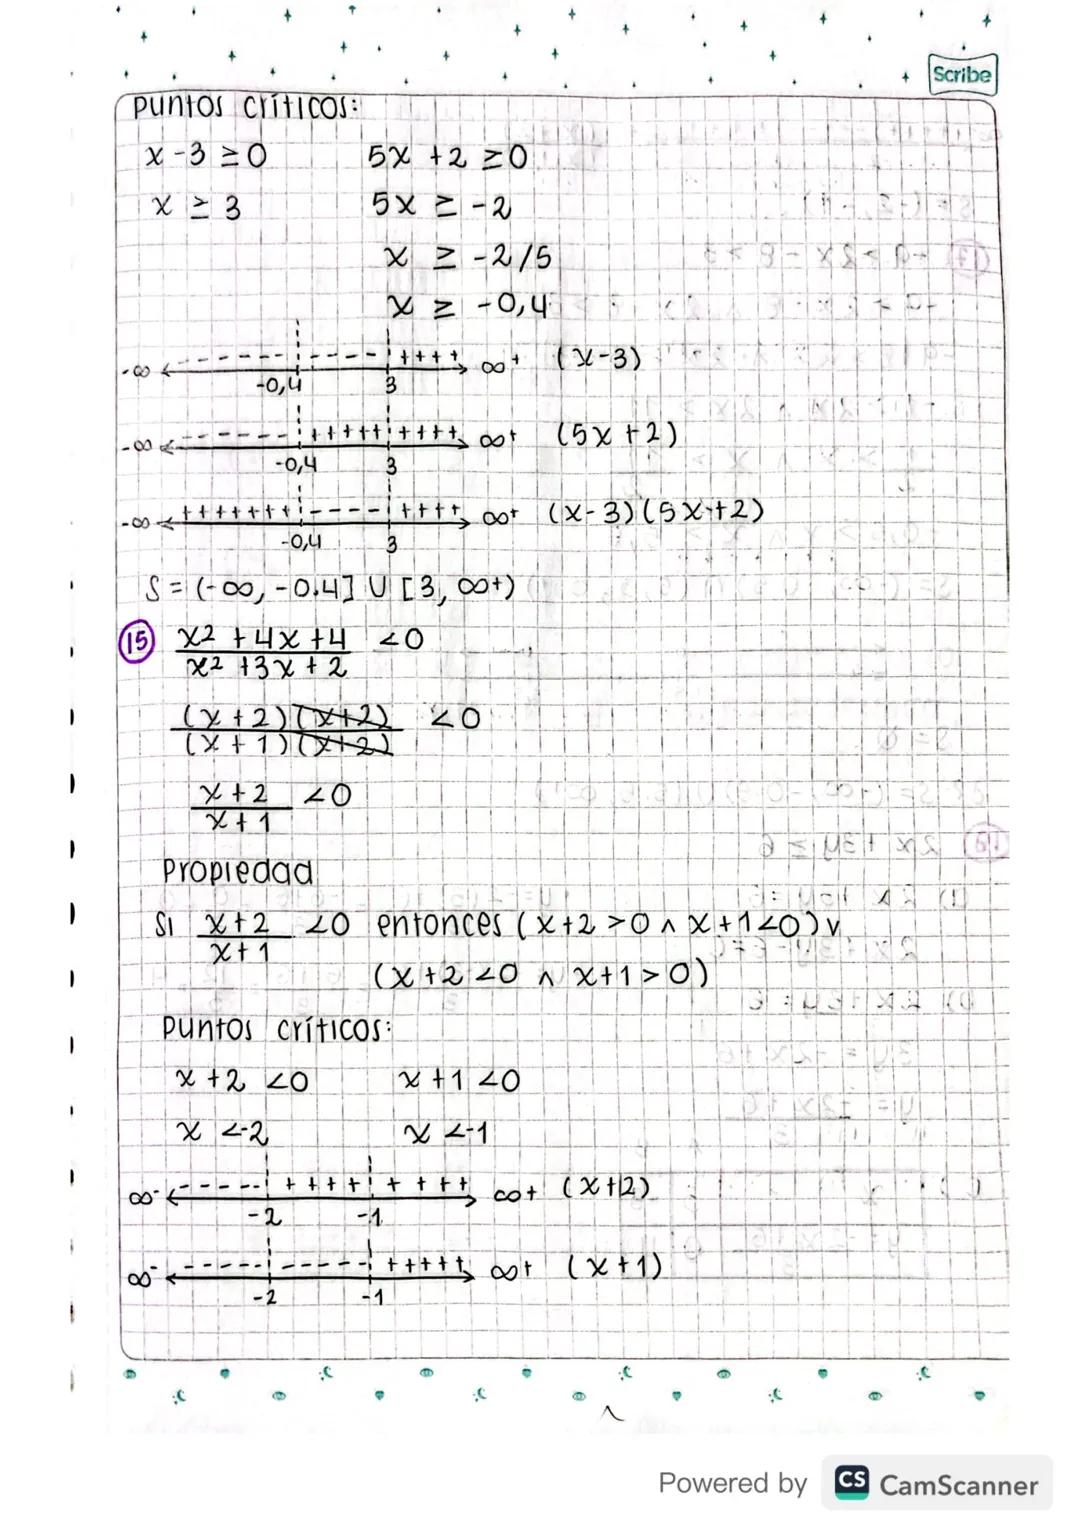 Scribe
Puntos críticos:
x - 3 ≥ 0 5x + 2 ≥ 0
x ≥ 3 5x ≥ -2
x ≥ -2/5
x ≥ -0,4
-∞ - - - - - - - - - - - + + + + ∞+ (x-3)
-0,4 3
-∞ - - - - - - + + + + + + + + + ∞+ (5x+2)
-0,4 3
-∞ + + + + + + + - - - - + + + + ∞+ (x-3)(5x+2)
-0,4 3
S = (-∞, -0.4] U [3, ∞+)
15 x2 + 4x + 4 / x2 + 3x + 2 < 0
(x+2)(x+2) / (x+1)(x+2) < 0
x+2 / x+1 < 0
Propiedad
Si x+2 / x+1 < 0 entonces (x+2 > 0 ∧ x+1 < 0) v
(x+2 < 0 ∧ x+1 > 0)
Puntos críticos:
x + 2 < 0 x + 1 < 0
x < -2 x < -1
∞- - - - - - + + + + + + + + ∞+ (x+2)
-2 -1
∞- - - - - - - - - - - + + + + + ∞+ (x+1)
-2 -1
Powered by CS CamScanner